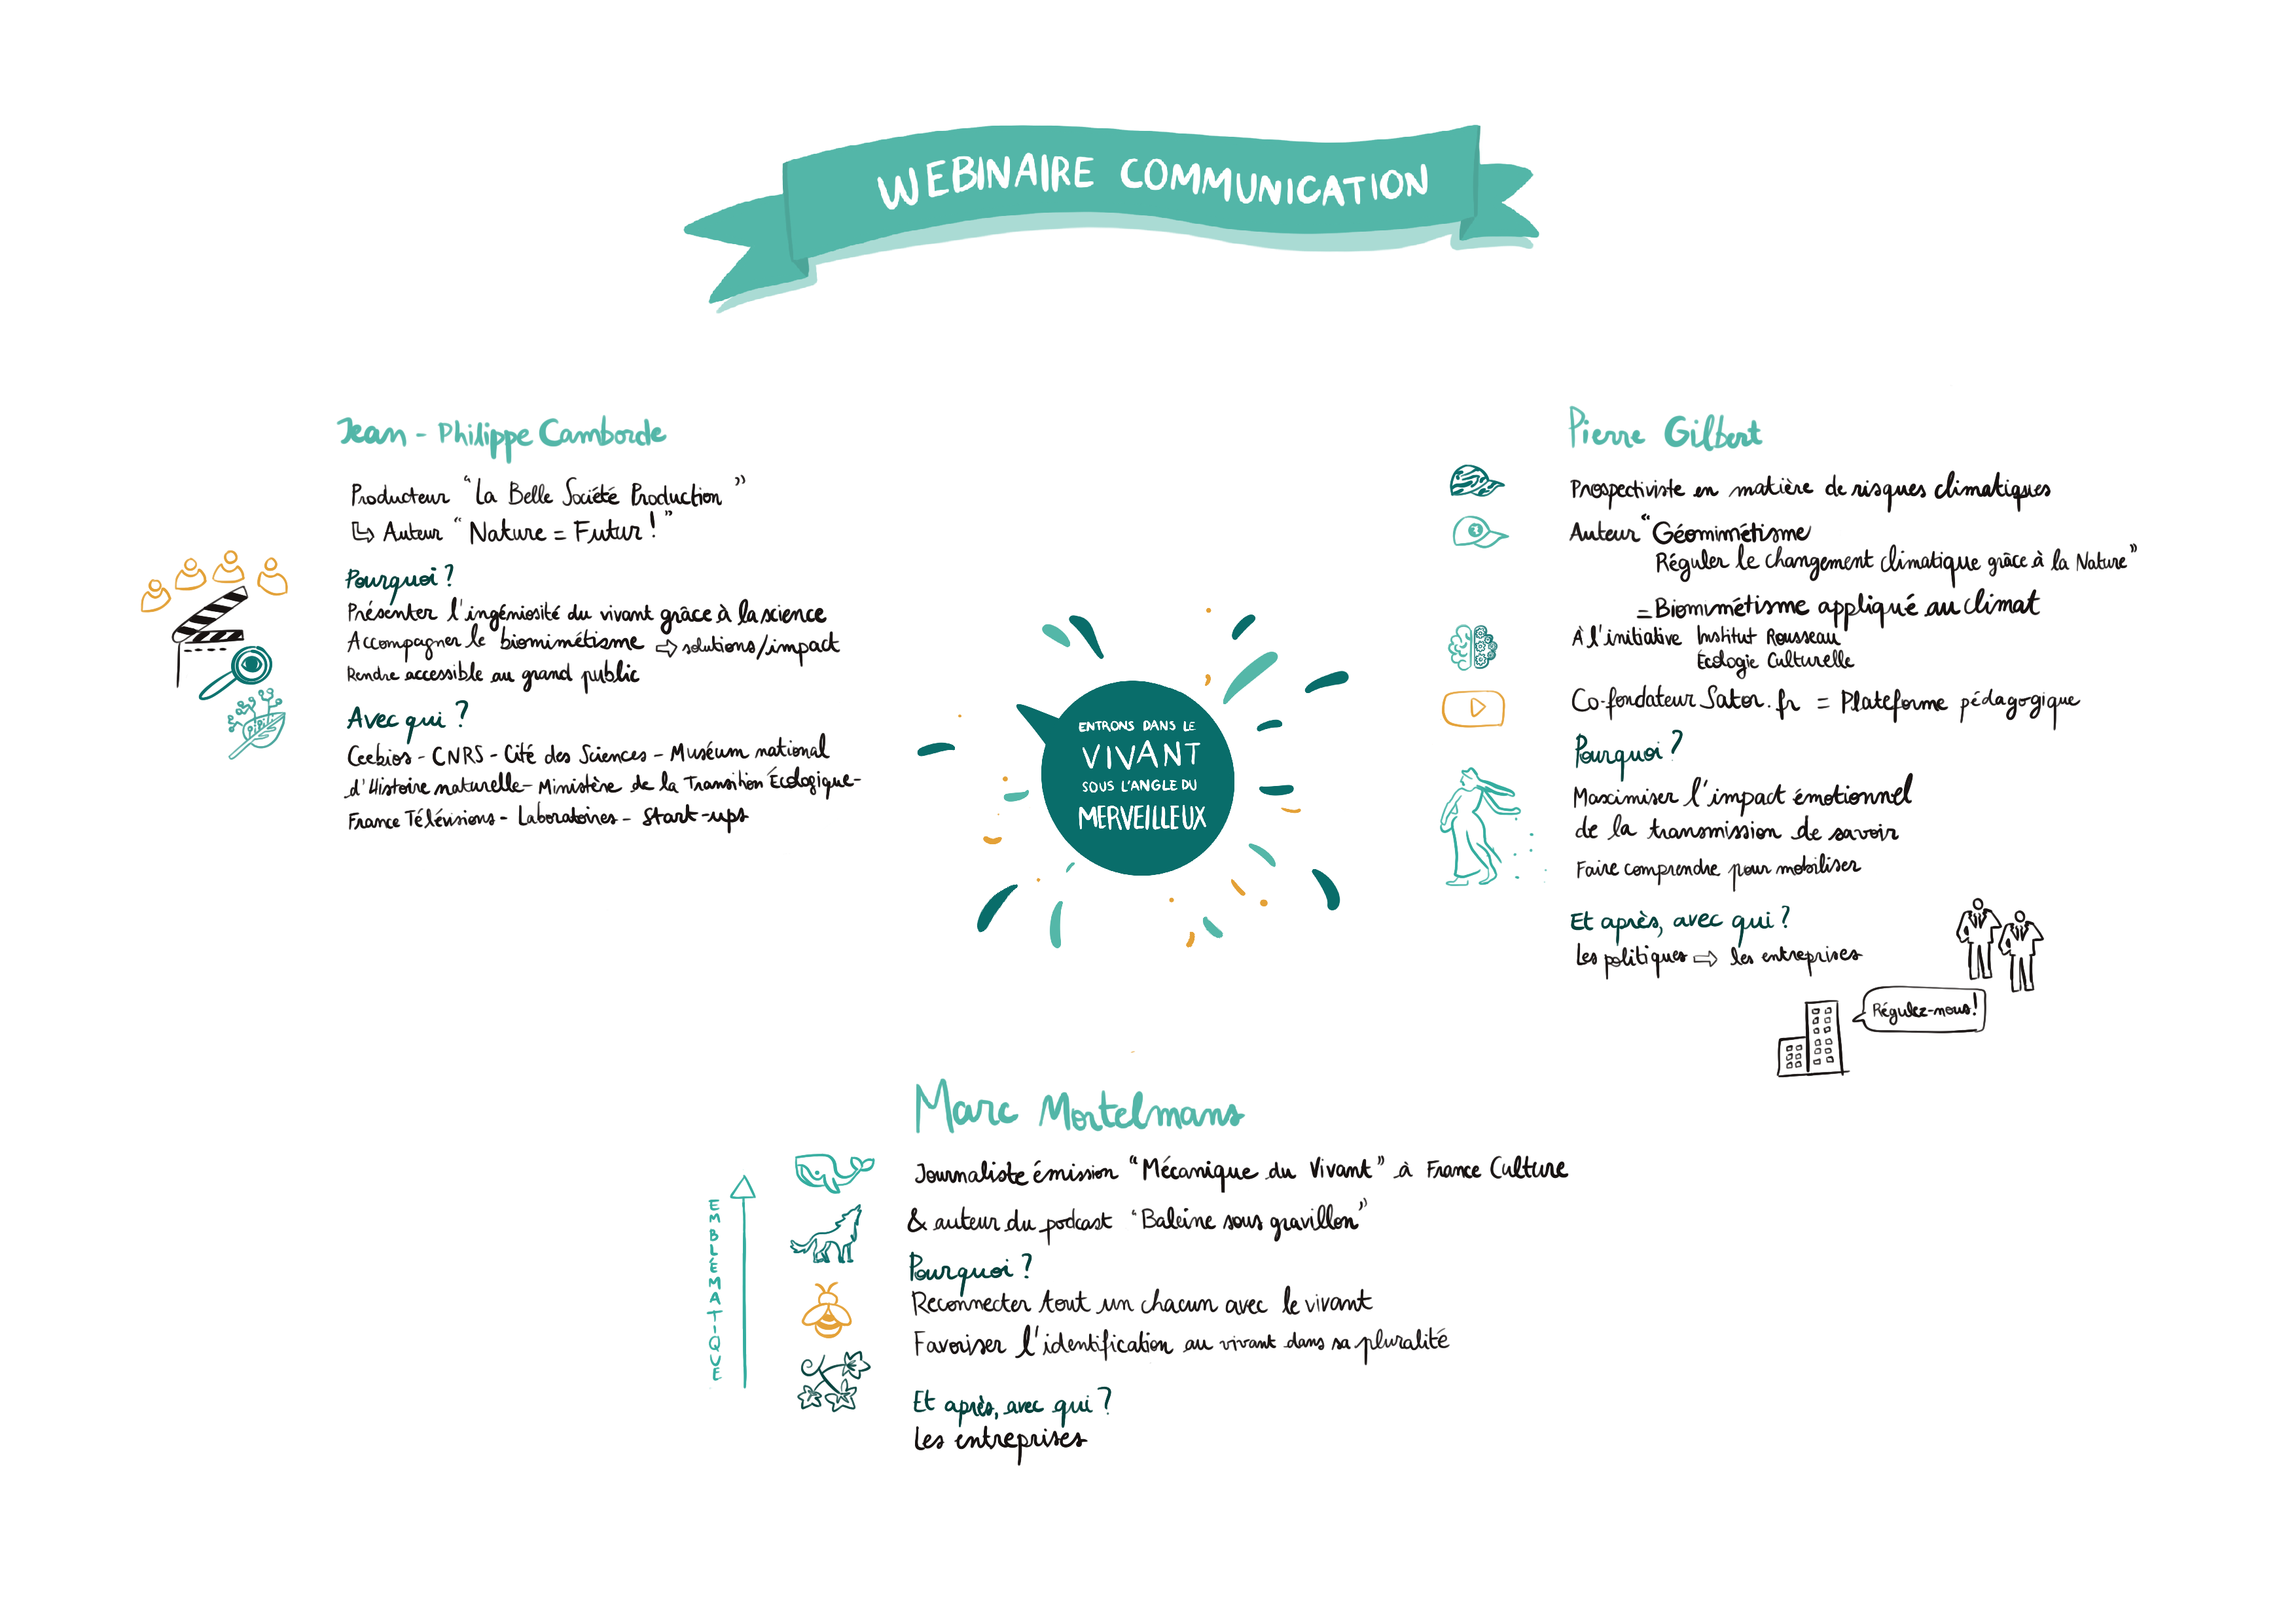 WEBINAIRE COMMUNICATION
Jean-Philippe Camborde
Producteur "La Belle Société Production"
Auteur "Nature = Futur!"
Pourquoi ?
Présenter l'ingéniosité du vivant grâce à la science
Accompagner le biomimétisme ⇨ solutions/impact
Rendre accessible au grand public
Avec qui ?
Ceebios - CNRS - Cité des Sciences - Muséum national
d'Histoire naturelle - Ministère de la Transition Écologique -
France Télévisions - Laboratoires - Start-ups
ENTRONS DANS LE
VIVANT
SOUS L'ANGLE DU
MERVEILLEUX
Pierre Gilbert
Prospectiviste en matière de risques climatiques
Auteur "Géomimétisme
Réguler le changement climatique grâce à la Nature"
= Biomimétisme appliqué au climat
À l'initiative Institut Rousseau
Écologie Culturelle
Co-fondateur Sator.fr = Plateforme pédagogique
Pourquoi ?
Maximiser l'impact émotionnel
de la transmission de savoir
Faire comprendre pour mobiliser
Et après, avec qui ?
Les politiques ⇨ les entreprises
Régulez-nous !
Marc Mortelmans
EMBLÉMATIQUE
Journaliste émission "Mécanique du Vivant" à France Culture
& auteur du podcast "Baleine sous gravillon"
Pourquoi ?
Reconnecter tout un chacun avec le vivant
Favoriser l'identification au vivant dans sa pluralité
Et après, avec qui ?
Les entreprises